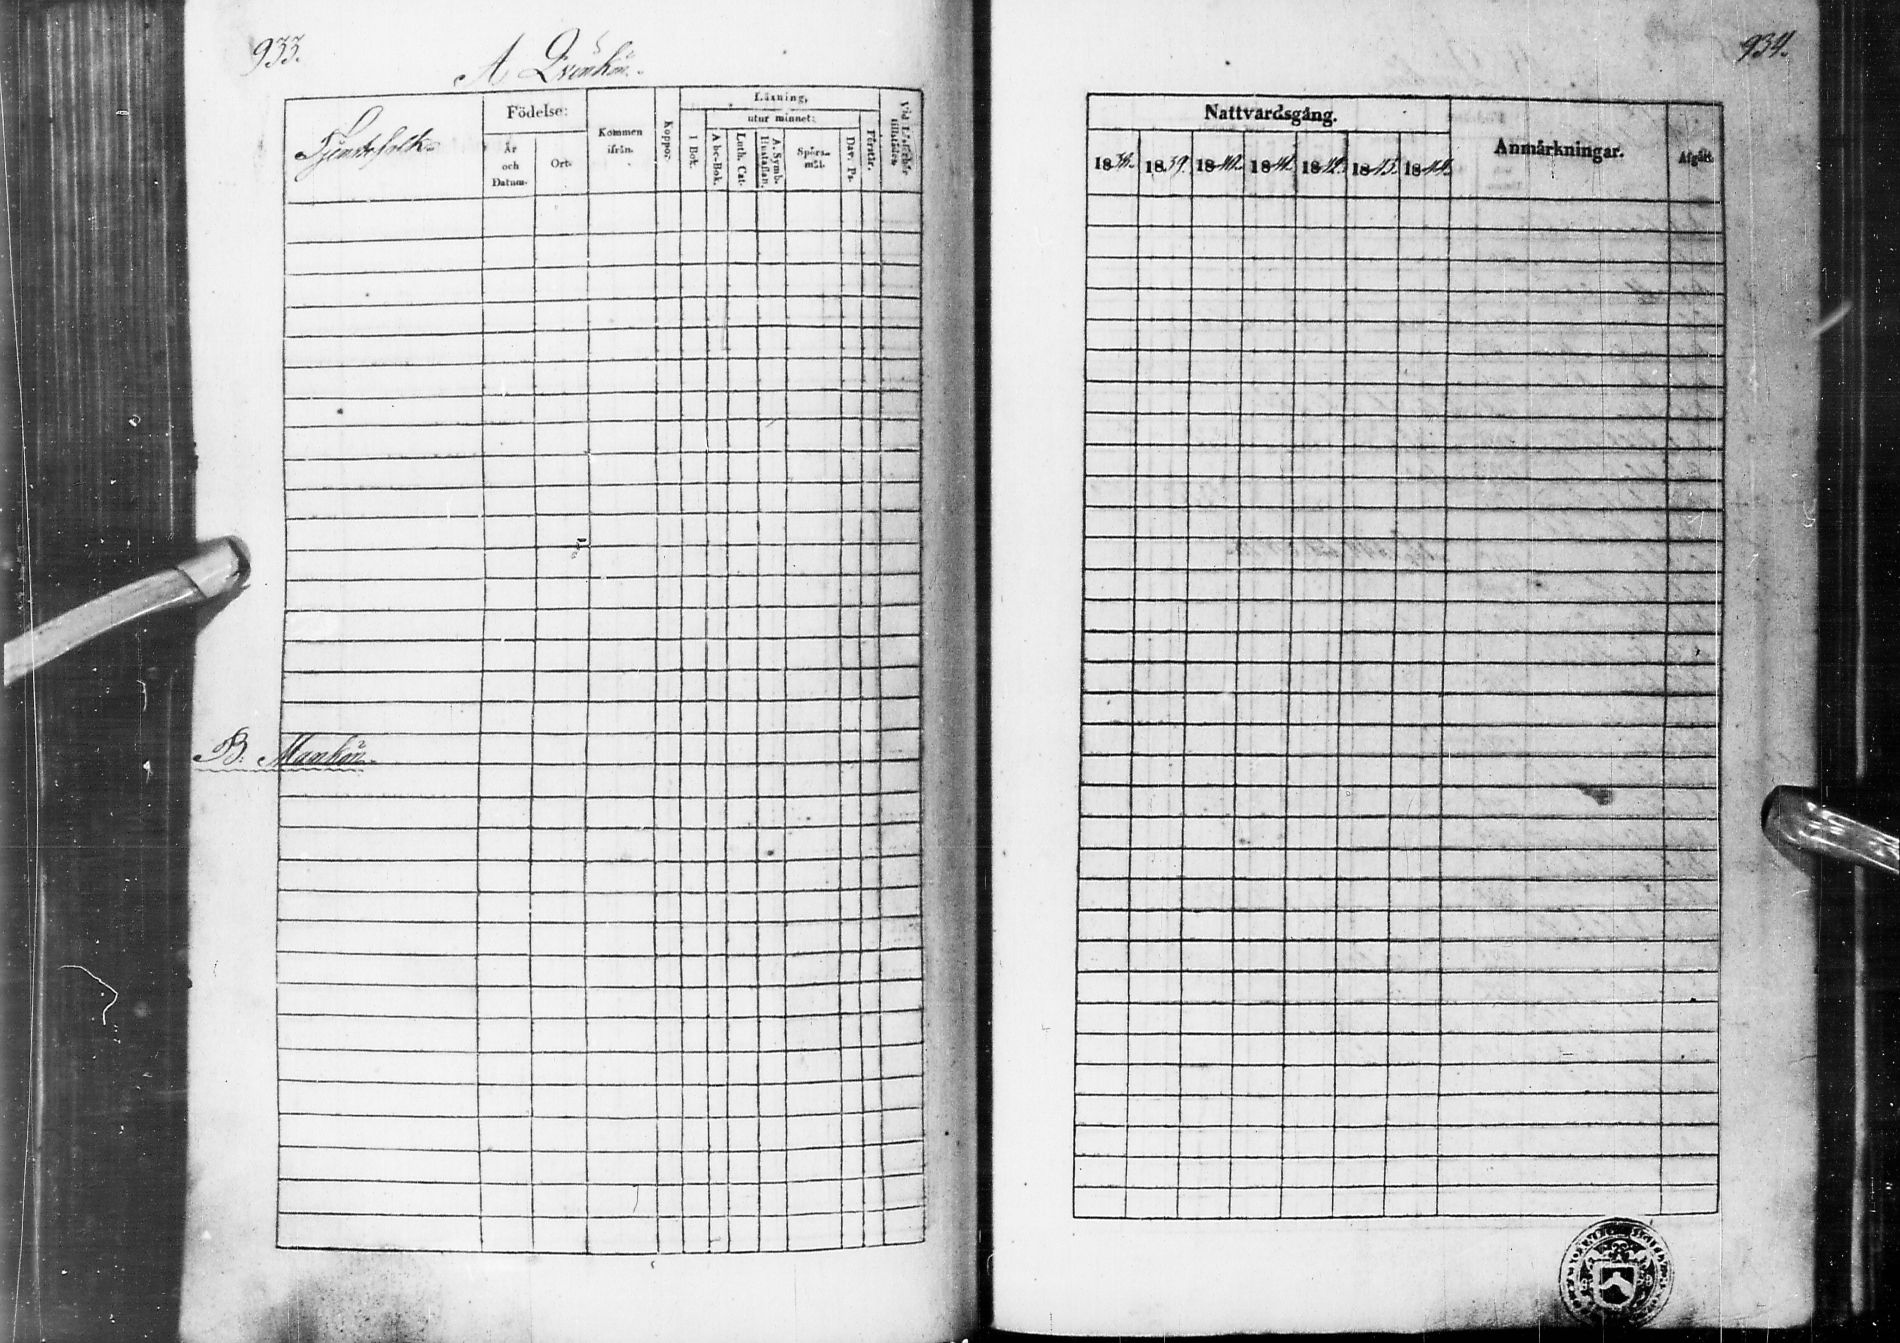 933.
A Qvinkön.
Tjenstefolk.
Födelse:
År och Datum.
Ort.
Kommen ifrån.
Koppor.
Läsning,
utur minnet:
I Bok.
Abc-Bok.
Luth. Cat.
A. Symb. Hustaflan.
Spörsmål.
Dav. Ps.
Förstår.
B. Mankön.
934.
Nattvardsgång.
1838. 1839. 1840. 1841. 1842. 1843. 1844.
Anmärkningar.
Afgått.